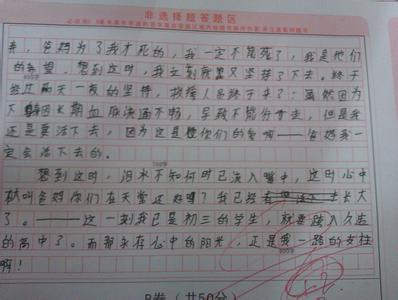 非选择题答题区
亲，爸妈为了我才死的，我一定不能死了，我是他们
的希望，想到这时，我立刻又坚持了下去。终于
经过两天一夜的坚持，救援人员终于来了：虽然因为
下 因长期血脉流通不畅，导致不能行走，但是我
还是要活下去，因为这是你们的希望——爸妈我一
定会活下去的。
想到这时，泪水不知何时已流入嘴中，这时心中
就叫爸妈你们在天堂还好吗？我已经 长大
了。——这一刻我已是初三的学生，就要踏入久违
的高中了。而那永在心中的阳光，正是我一路的支柱
啊！
B卷（共50分）